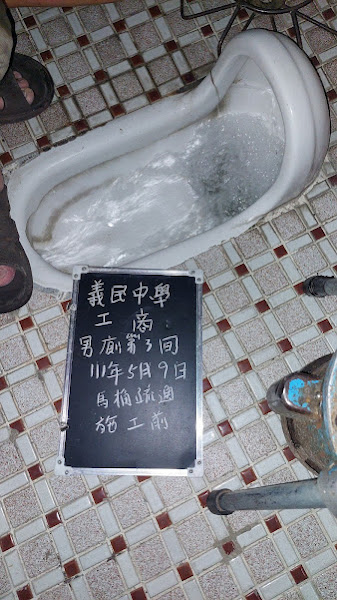 義民中學
工商
男廁第3間
111年5月9日
馬桶疏通
施工前